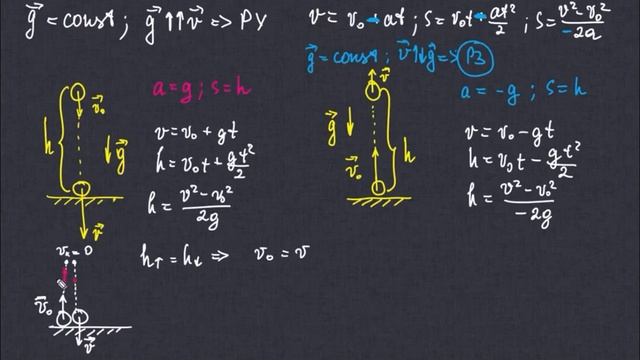 g⃗ = const ; g⃗ ↑↑ v⃗ => РУ
v = v₀ - at ; S = v₀t - at²/2 ; S = (v² - v₀²)/-2a
g⃗ = const ; v⃗ ↑↓ g⃗ => РЗ
a = g ; s = h
v⃗₀
h
g⃗
v⃗
v = v₀ + gt
h = v₀t + gt²/2
h = (v² - v₀²)/2g
a = -g ; s = h
v⃗
g⃗
v⃗₀
h
v = v₀ - gt
h = v₀t - gt²/2
h = (v² - v₀²)/-2g
h↑ = h↓ => v₀ = v
= 0
v⃗₀
v⃗